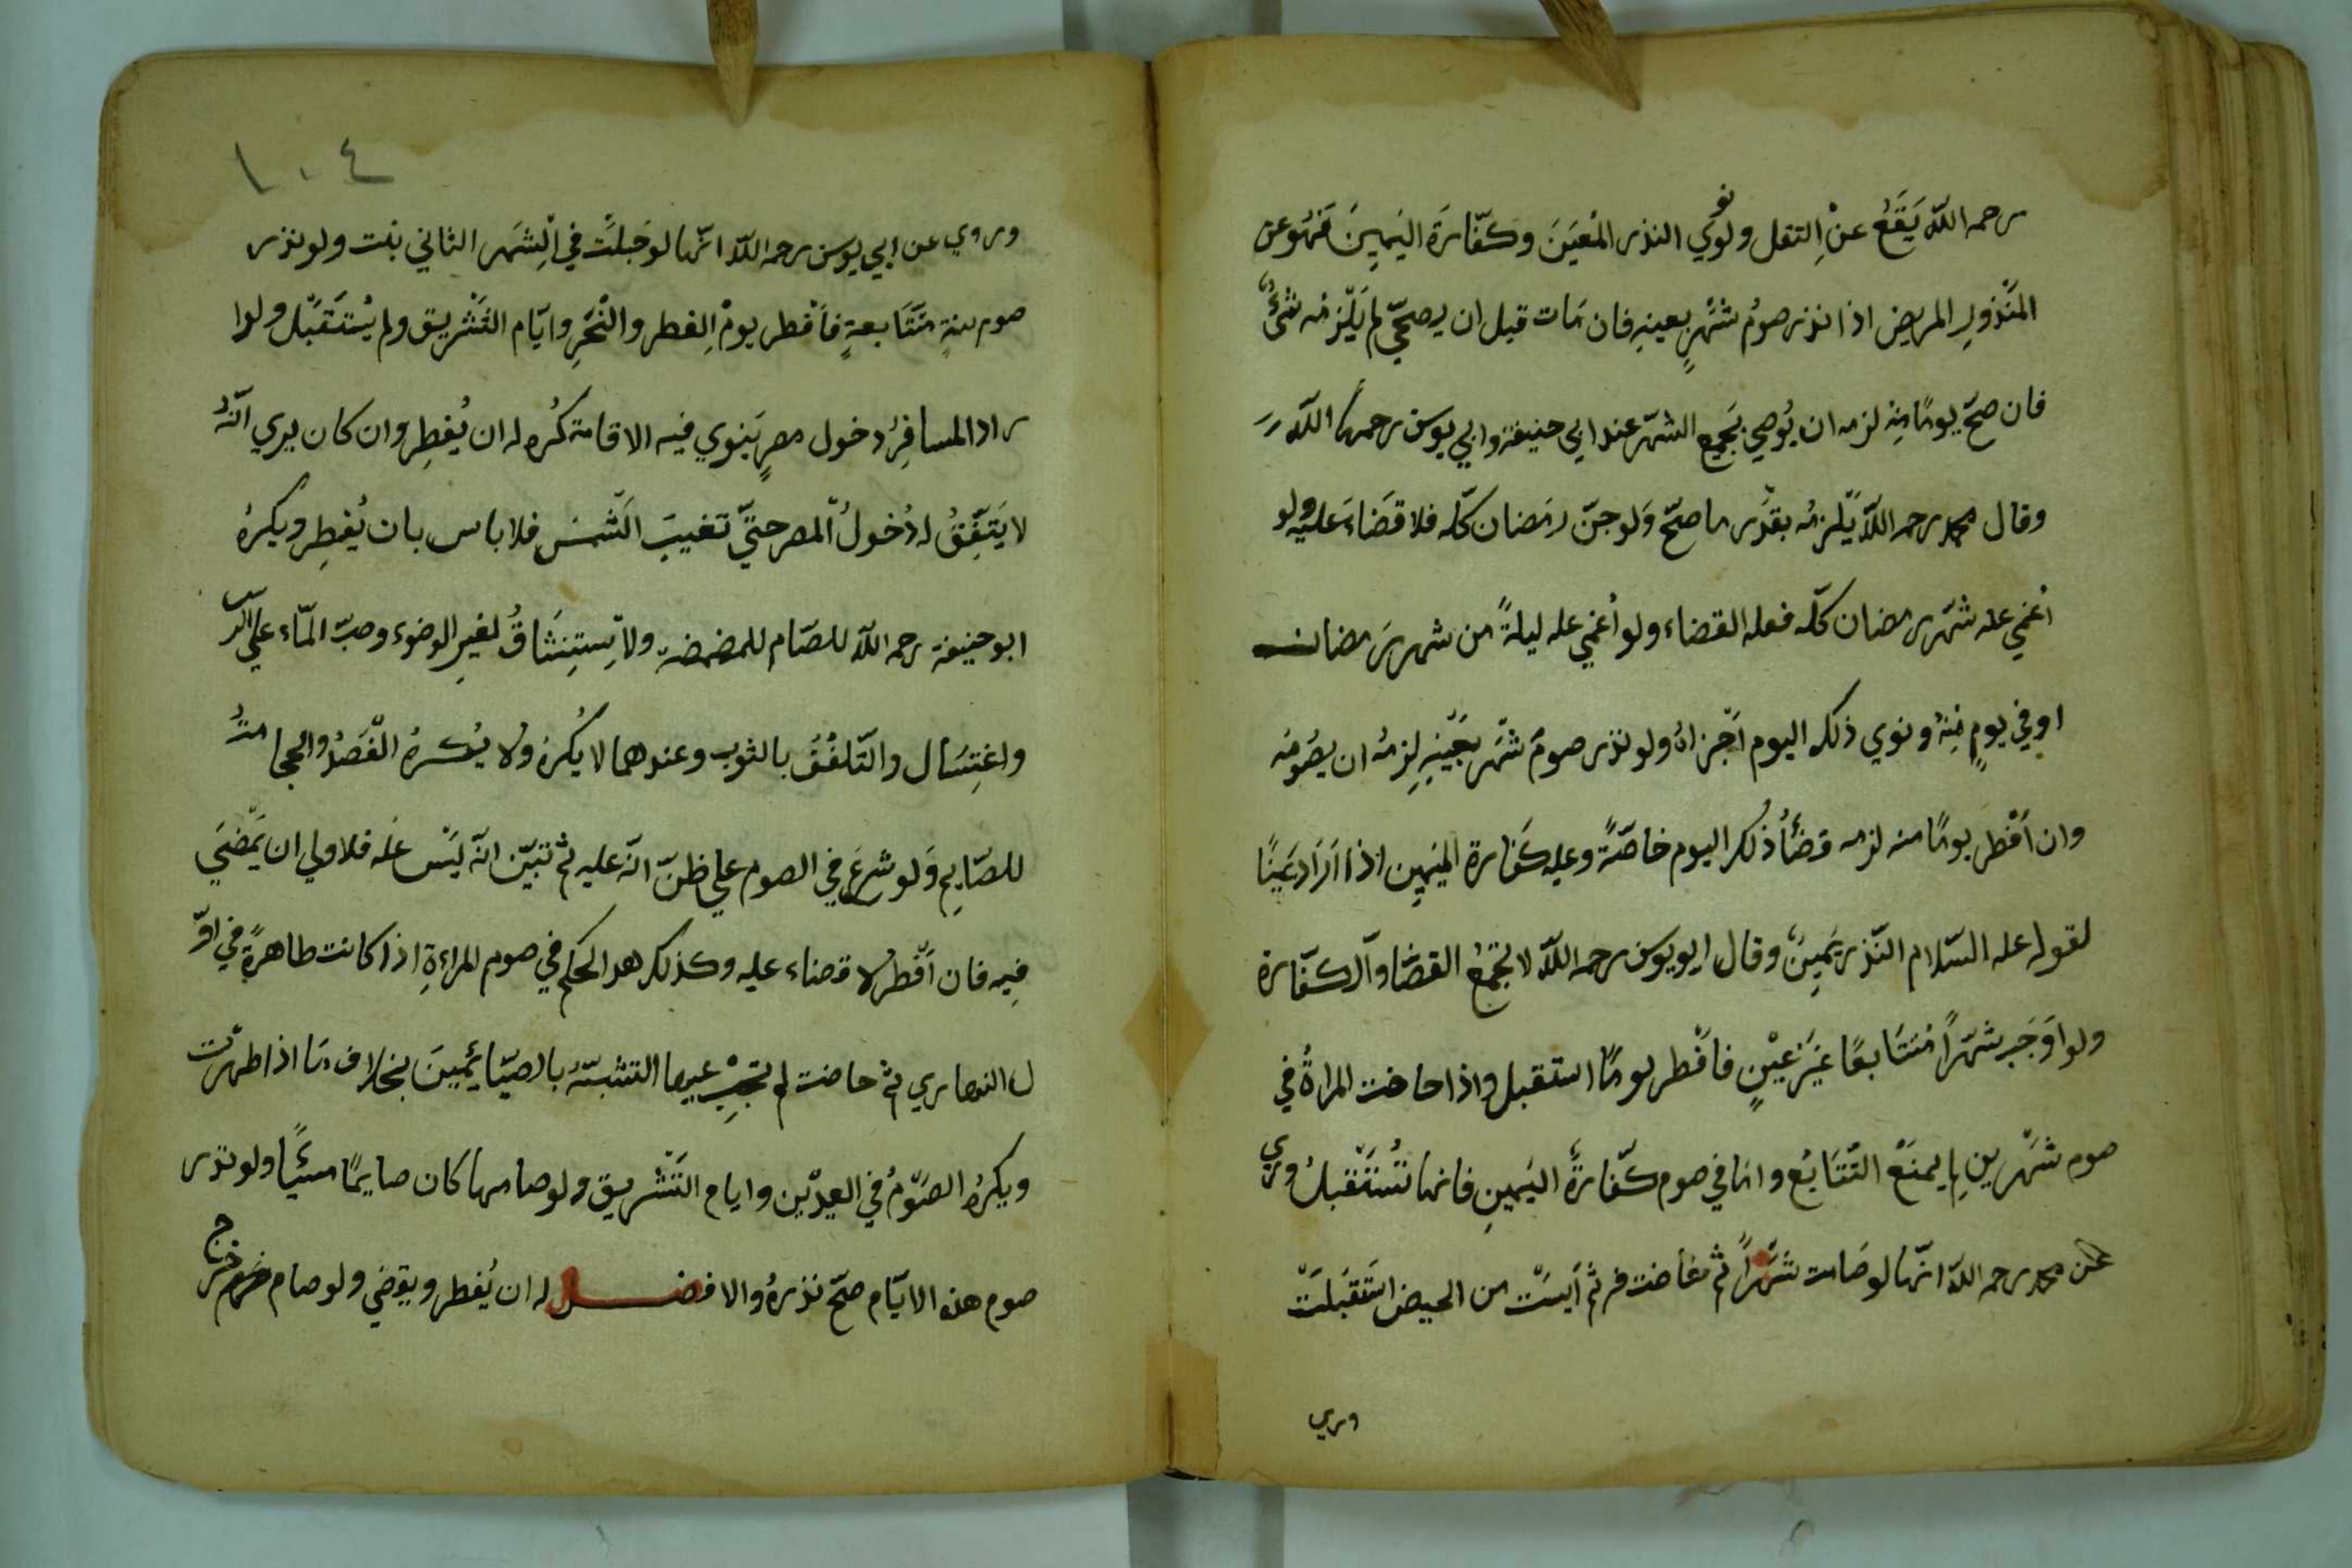 رحمه اللّه يَقَعُ عنْ النفل ولو نوي النذر المُعيَنَ وكفّارَةَ اليَمِينَ فَهُوعن
المَنْذورِ المريض اذا نذر صومُ شهْرٍ بعينهِ فان مَات قبل ان يصحّ لم يَلْزمُه شئٌ
فان صحّ يومًا مِنهُ لزمه ان يُوصي بجَميع الشهّر عند ابي حنيفة وابي يوسف رحمهما اللّه
وقال محمد رحمه اللّه يَلْزمُه بقدْر ما صحّ وَلو جنّ رمَضان كلّه فلا قضَاءَ عليه ولو
أُغمي عله شهْر رمضان كلّه فعله القضاء ولو أُغمي عله ليلةً من شهر رَمضان
او في يومٍ مِنهُ ونوي ذلك اليوم اَجْزاهُ ولو نذر صومَ شهْر بعَيْنهِ لزمُه ان يصُومُه
وان اَفْطَر يومًا منه لزمه قضَأُ ذلُكر اليوم خاصّةً وعليه كفّارة اليمِين اذا اَرَاد يَمِينًا
لقوله عله السّلام النّذر يَمِينٌ وقال ابو يوسف رحمه اللّه لا يجَمعُ القضَا والكفّارة
ولو اَوَجَب شَهرًا مُتَتَابعًا غَيرَ عيْنٍ فافْطر يومًا استقبل واذا حاضت المراةُ في
صوم شَهْرينِ لم يمنَعْ التّتَابُع واما في صوم كفّارةُ اليَمينِ فانها تُستَقبلُ وروي
عن محمد رحمه اللّه انّها لو صَامت شهْرًا ثم حَاضت ثم اَيسَتْ من الحيض استَقبَلَتْ
وروي
١٠٤
وروي عن ابي يوسف رحمه اللّه انّها لو حَبلَت في الشهَر الثاني بنت ولو نذر
صوم سنةٍ متَتَابعةٍ فاَفْطر يومْ الفطر والنّحْرِ وايّام التَشْريق ولم يسْتَقبَل ولوا
راد المسافِرُ دخول مصرٍ يَنوي فيه الاقامة كُره له ان يُفطِر وان كان يري انّهُ
لا يَتفِقُ له دُخولُ المصر حتّيَ تغيبَ الشّمسُ فلا باس بان يُفطِر ويكرهُ
ابو حنيفة رحمه اللّه للصّام للمضمضة ولاِستِنشَاقُ لغيرِ الوضوء وصبّ المّاء علي الرّاس
واغتِسَال والتّلفُفُ بالثوب وعندهما لا يُكرهُ ولا يُكرهُ الفَصْدُ والحجامةُ
للصّايِم وَلو شرعَ في الصوم علي ظنّ انّه عليه ثم تبيّن انّه ليَسْ عَله فلاولي ان يَمْضيَ
فِيه فان اَفْطر لا قضاء عليه وكذلكر هذ الحكم في صوم المراءةِ اذا كانت طاهرةً في اوّ
ل النهاري ثم حاضت لم تجَبْ عيها التشبّهُ بالصّائمِينَ بخلاف مَا اذا طهرت
ويكرهُ الصَوْمُ في العيديْن وايام التَشْريق ولو صامها كان صايمًا مسئًا ولو نذر
صوم هذه الايّام صحّ نذرهُ والافضل له ان يُفطر ويقضي ولو صام خرج